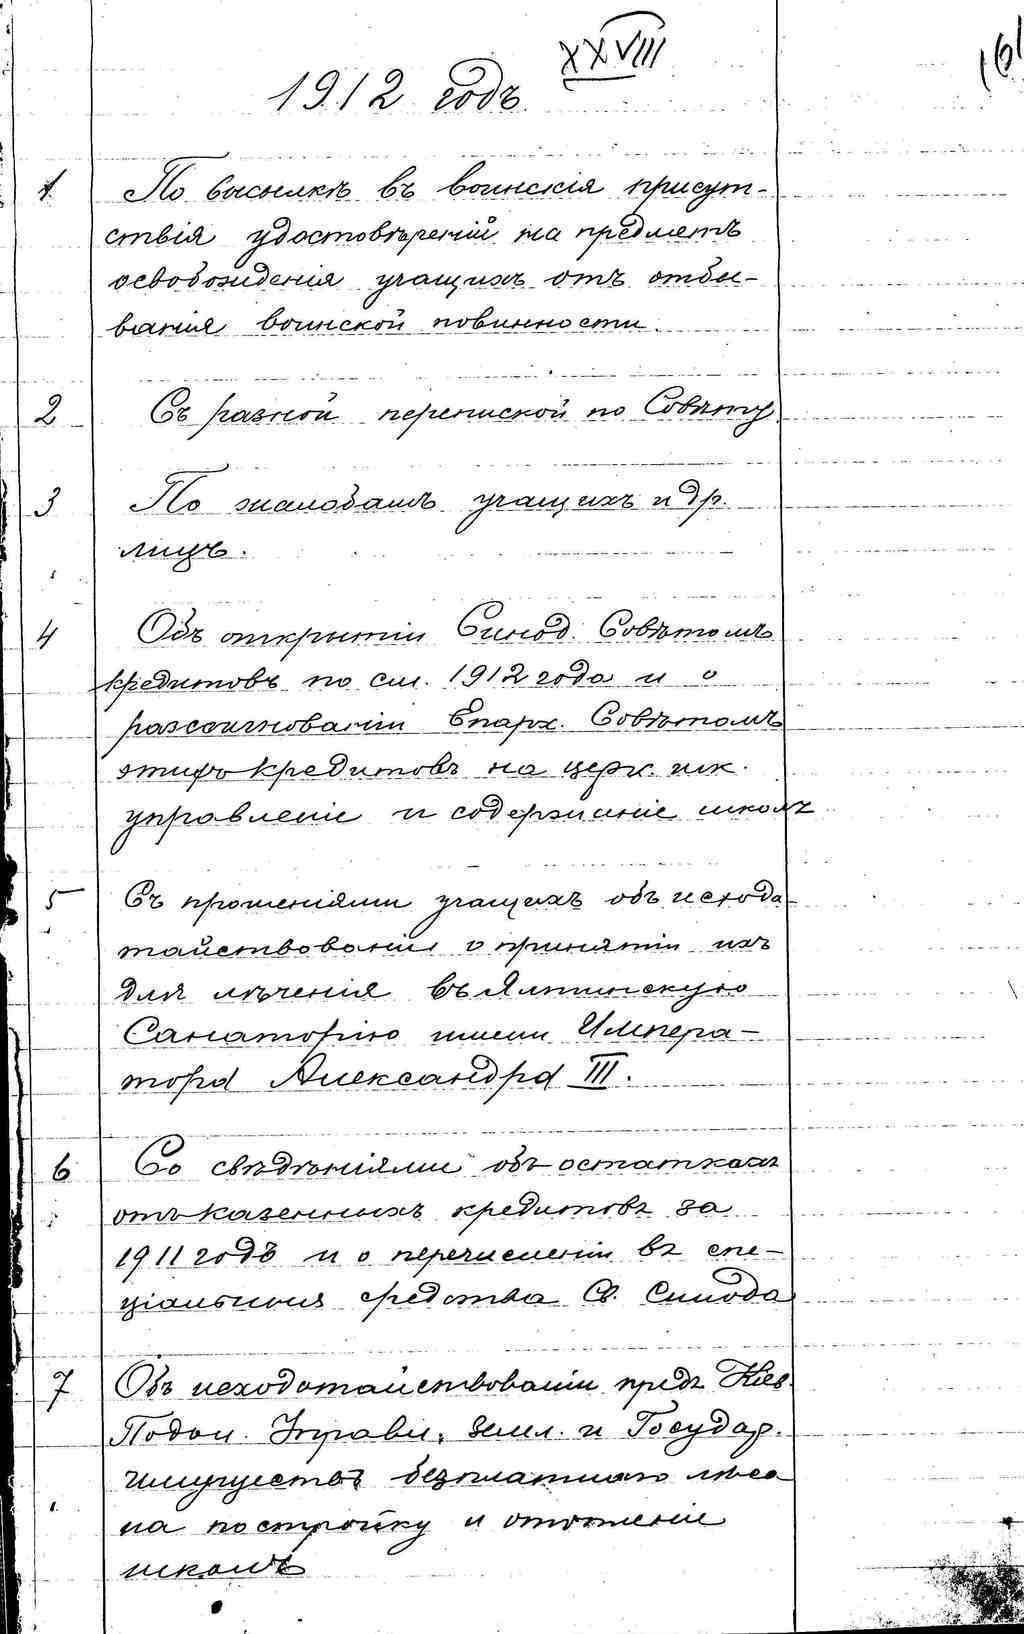 XXVIII
161
1912 годъ
1 По высылкѣ въ воинскія присут-
ствія удостовѣреній на предметъ
освобожденія учащихъ отъ отбы-
ванія воинской повинности.
2 Съ разной перепиской по Совѣту
3 По жалобамъ учащихъ и др.
лицъ.
4 Объ открытіи Синод. Совѣтомъ
кредитовъ по см. 1912 года и о
разсигнованіи Епарх. Совѣтомъ
этихъ кредитовъ на церк. шк.
управленіе и содержаніе школъ
5 Съ прошеніями учащихъ объ исхода-
тайствованіи о принятіи ихъ
для лѣченія въ Ялтинскую
Санаторію имени Импера-
тора Александра III.
6 Со свѣдѣніями объ остаткахъ
отъ казенныхъ кредитовъ за
1911 годъ и о перечисленіи въ спе-
ціальныя средства Св. Синода
7 Объ исходотайствованіи предъ Кіев.
Подол. Управл. Земл. и Государ.
имуществъ безплатнаго лѣса
на постройку и отопленіе
школъ